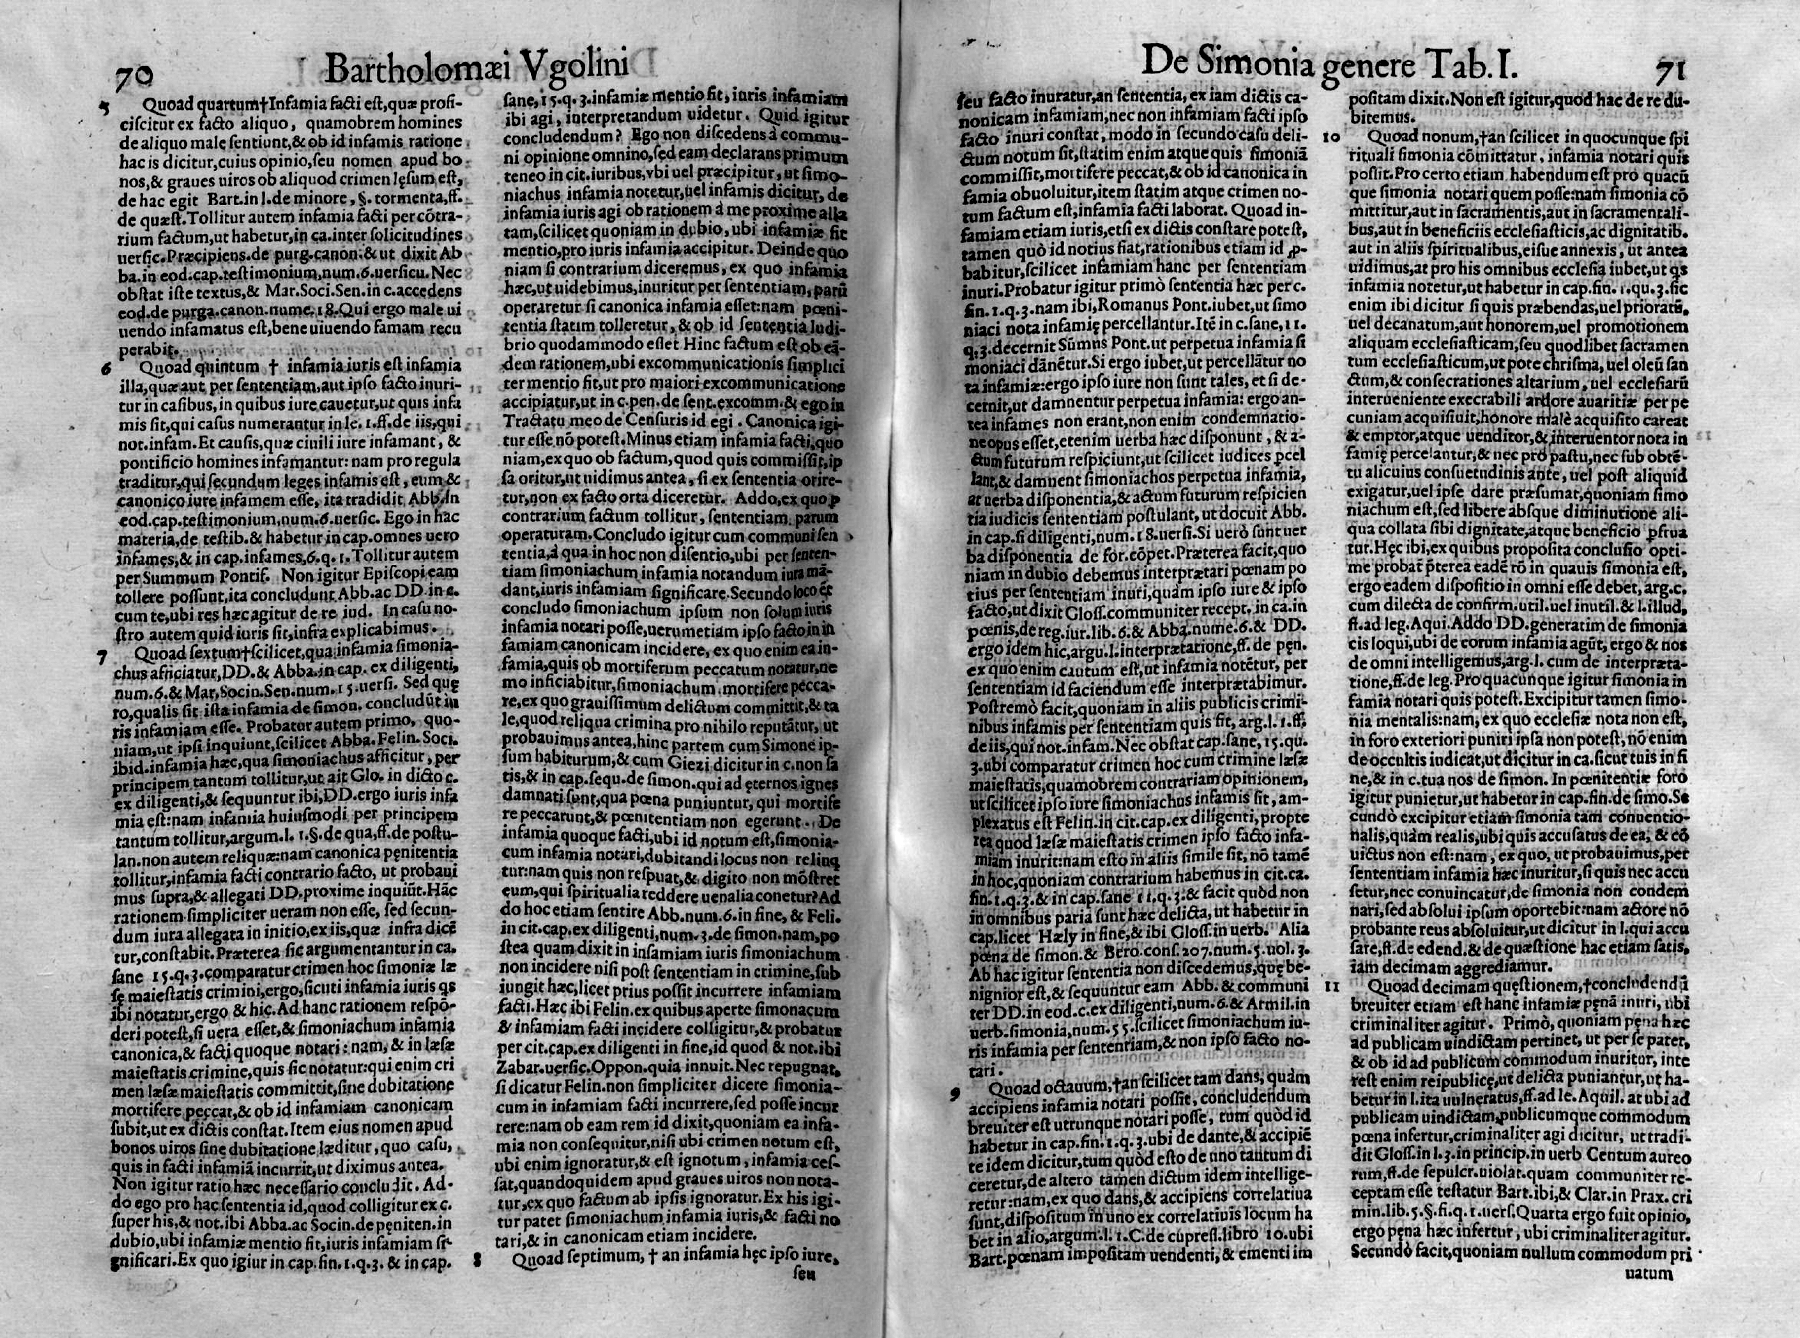 70 Bartholomæi Vgolini
5 Quoad quartum†Infamia facti est, quæ profi-
ciscitur ex facto aliquo, quamobrem homines
de aliquo male sentiunt,& ob id infamis ratione
hac is dicitur, cuius opinio, seu nomen apud bo
nos,& graues uiros ob aliquod crimen lęsum est,
de hac egit Bart. in l. de minore, §. tormenta, ff.
de quæst. Tollitur autem infamia facti per cõtra-
rium factum, ut habetur, in ca. inter solicitudines
uersic. Præcipiens. de purg. canon. & ut dixit Ab
ba. in eod. cap. testimonium, num. 6. uersicu. Nec
obstat iste textus,& Mar. Soci. Sen. in c. accedens
eod. de purga. canon. nume. 18. Qui ergo male ui
uendo infamatus est, bene uiuendo famam recu
perabit.
6 Quoad quintum † infamia iuris est infamia
illa, quæ aut per sententiam, aut ipso facto inuri-
tur in casibus, in quibus iure cauetur, ut quis infa
mis sit, qui casus numerantur in le. 1. ff. de iis, qui
not. infam. Et causis, quæ ciuili iure infamant, &
pontificio homines infamantur: nam pro regula
traditur, qui secundum leges infamis est, eum &
canonico iure infamem esse, ita tradidit Abb. in
eod. cap. testimonium, num. 6. uersic. Ego in hac
materia, de testib. & habetur in cap. omnes uero
infames,& in cap. infames, 6. q. 1. Tollitur autem
per Summum Pontif. Non igitur Episcopi eam
tollere possunt, ita concludunt Abb. ac DD. in c.
cum te, ubi res hæc agitur de re iud. In casu no-
stro autem quid iuris sit, infra explicabimus.
7 Quoad sextum†scilicet, qua infamia simonia-
chus afficiatur, DD. & Abba. in cap. ex diligenti,
num. 6. & Mar. Socin. Sen. num. 15. uersi. Sed quę
ro, qualis sit ista infamia de simon. concludũt iu
ris infamiam esse. Probatur autem primo, quo-
niam, ut ipsi inquiunt, scilicet Abba. Felin. Soci.
ibid. infamia hæc, qua simoniachus afficitur, per
principem tantum tollitur, ut ait Glo. in dicto c.
ex diligenti,& sequuntur ibi, DD. ergo iuris infa
mia est: nam infamia huiusmodi per principem
tantum tollitur, argum. l. 1. §. de qua, ff. de postu-
lan. non autem reliquæ: nam canonica pęnitentia
tollitur, infamia facti contrario facto, ut probaui
mus supra,& allegati DD. proxime inquiũt. Hãc
rationem simpliciter ueram non esse, sed secun-
dum iura allegata in initio, ex iis, quæ infra dicẽ
tur, constabit. Præterea sic argumentantur in ca.
sane 15. q. 3. comparatur crimen hoc simoniæ læ
sę maiestatis crimini, ergo, sicuti infamia iuris qs
ibi notatur, ergo & hic. Ad hanc rationem respõ-
deri potest, si uera esset, & simoniachum infamia
canonica,& facti quoque notari: nam, & in læsæ
maiestatis crimine, quis sic notatur: qui enim cri
men læsæ maiestatis committit, sine dubitatione
mortifere peccat,& ob id infamiam canonicam
subit, ut ex dictis constat. Item eius nomen apud
bonos uiros sine dubitatione læditur, quo casu,
quis in facti infamiã incurrit, ut diximus antea.
Non igitur ratio hæc necessario concludit. Ad-
do ego pro hac sententia id, quod colligitur ex c.
super his,& not. ibi Abba. ac Socin. de pęniten. in
dubio, ubi infamiæ mentio fit, iuris infamiam si-
gnificari. Ex quo igiur in cap. fin. 1. q. 3. & in cap.
sane, 15. q. 3. infamiæ mentio fit, iuris infamiam
ibi agi, interpretandum uidetur. Quid igitur
concludendum? Ego non discedens à commu-
ni opinione omnino, sed eam declarans primum
teneo in cit. iuribus, vbi uel præcipitur, ut simo-
niachus infamia notetur, uel infamis dicitur, de
infamia iuris agi ob rationem à me proxime alla
tam, scilicet quoniam in dubio, ubi infamiæ fit
mentio, pro iuris infamia accipitur. Deinde quo
niam si contrarium diceremus, ex quo infamia
hæc, ut uidebimus, inuritur per sententiam, parũ
operaretur si canonica infamia esset: nam pœni-
tentia statim tolleretur, & ob id sententia ludi-
brio quodammodo esset. Hinc factum est ob eã-
dem rationem, ubi excommunicationis simplici
ter mentio fit, ut pro maiori excommunicatione
accipiatur, ut in c. pen. de sent. excomm. & ego in
Tractatu meo de Censuris id egi. Canonica igi-
tur esse nõ potest. Minus etiam infamia facti, quo
niam, ex quo ob factum, quod quis commisit, ip
sa oritur, ut uidimus antea, si ex sententia orire-
tur, non ex facto orta diceretur. Addo, ex quo p
contrarium factum tollitur, sententiam parum
operaturam. Concludo igitur cum communi sen
tentia, à qua in hoc non disentio, ubi per senten-
tiam simoniachum infamia notandum iura mã-
dant, iuris infamiam significare. Secundo loco ex
concludo simoniachum ipsum non solum iuris
infamia notari posse, uerumetiam ipso facto in in
famiam canonicam incidere, ex quo enim ea in-
famia, quis ob mortiferum peccatum notatur, ne
mo inficiabitur, simoniachum mortifere pecca-
re, ex quo grauissimum delictum committit,& ta
le, quod reliqua crimina pro nihilo reputãtur, ut
probauimus antea, hinc partem cum Simone ip-
sum habiturum,& cum Giezi dicitur in c. non sa
tis,& in cap. sequ. de simon. qui ad ęternos ignes
damnati sunt, qua pœna puniuntur, qui mortife
re peccarunt,& pœnitentiam non egerunt. De
infamia quoque facti, ubi id notum est, simonia-
cum infamia notari, dubitandi locus non relinq
tur: nam quis non respuat,& digito non mõstret
eum, qui spiritualia reddere uenalia conetur? Ad
do hoc etiam sentire Abb. num. 6. in fine, & Feli.
in cit. cap. ex diligenti, num. 3. de simon. nam, po
stea quam dixit in infamiam iuris simoniachum
non incidere nisi post sententiam in crimine, sub
iungit hæc, licet prius possit incurrere infamiam
facti. Hæc ibi Felin. ex quibus aperte simonacum
& infamiam facti incidere colligitur,& probatur
per cit. cap. ex diligenti in fine, id quod & not. ibi
Zabar. uersic. Oppon. quia innuit. Nec repugnat,
si dicatur Felin. non simpliciter dicere simonia-
cum in infamiam facti incurrere, sed posse incur
rere: nam ob eam rem id dixit, quoniam ea infa-
mia non consequitur, nisi ubi crimen notum est,
ubi enim ignoratur,& est ignotum, infamia ces-
sat, quandoquidem apud graues uiros non nota-
tur, ex quo factum ab ipsis ignoratur. Ex his igi-
tur patet simoniachum infamia iuris,& facti no
tari,& in canonicam etiam incidere.
8 Quoad septimum, † an infamia hęc ipso iure,
seu
De Simonia genere Tab. I. 71
seu facto inuratur, an sententia, ex iam dictis ca-
nonicam infamiam, nec non infamiam facti ipso
facto inuri constat, modo in secundo casu deli-
ctum notum sit, statim enim atque quis simoniã
commisit, mortifere peccat,& ob id canonica in
famia obuoluitur, item statim atque crimen no-
tum factum est, infamia facti laborat. Quoad in-
famiam etiam iuris, etsi ex dictis constare potest,
tamen quò id notius fiat, rationibus etiam id p-
babitur, scilicet infamiam hanc per sententiam
inuri. Probatur igitur primò sententia hæc per c.
fin. 1. q. 3. nam ibi, Romanus Pont. iubet, ut simo
niaci nota infamię percellantur. Itẽ in c. sane, 11.
q. 3. decernit Sũmus Pont. ut perpetua infamia si
moniaci dãnẽtur. Si ergo iubet, ut percellãtur no
ta infamiæ: ergo ipso iure non sunt tales, et si de-
cernit, ut damnentur perpetua infamia: ergo an-
tea infames non erant, non enim condemnatio-
ne opus esset, etenim uerba hæc disponunt, & a-
ctum futurum respiciunt, ut scilicet iudices pcel
lant,& damnent simoniachos perpetua infamia,
at uerba disponentia,& actum futurum respicien
tia iudicis sententiam postulant, ut docuit Abb.
in cap. si diligenti, num. 18. uersi. Si uerò sunt uer
ba disponentia de for. cõpet. Præterea facit, quo
niam in dubio debemus interprætari pœnam po
tius per sententiam inuri, quàm ipso iure & ipso
facto, ut dixit Gloss. communiter recept. in ca. in
pœnis, de reg. iur. lib. 6. & Abba. nume. 6. & DD.
ergo idem hic, argu. l. interprætatione, ff. de pęn.
ex quo enim cautum est, ut infamia notẽtur, per
sententiam id faciendum esse interprætabimur.
Postremò facit, quoniam in aliis publicis crimi-
nibus infamis per sententiam quis fit, arg. l. 1. ff.
de iis, qui not. infam. Nec obstat cap. sane, 15. qu.
3. ubi comparatur crimen hoc cum crimine læsæ
maiestatis, quamobrem contrariam opinionem,
ut scilicet ipso iure simoniachus infamis sit, am-
plexatus est Felin. in cit. cap. ex diligenti, propte
rea quod læsæ maiestatis crimen ipso facto infa-
miam inurit: nam esto in aliis simile sit, nõ tamẽ
in hoc, quoniam contrarium habemus in cit. ca.
fin. 1. q. 3. & in cap. sane 11. q. 3. & facit quòd non
in omnibus paria sunt hæc delicta, ut habetur in
cap. licet Hæly in fine,& ibi Gloss. in uerb. Alia
pœna de simon. & Bero. cons. 207. num. 5. uol. 3.
Ab hac igitur sententia non discedemus, quę be-
nignior est,& sequuntur eam Abb. & communi
ter DD. in eod. c. ex diligenti, num. 6. & Armil. in
uerb. simonia, num. 55. scilicet simoniachum iu-
ris infamia per sententiam,& non ipso facto no-
tari.
9 Quoad octauum,†an scilicet tam dans, quàm
accipiens infamia notari possit, concludendum
breuiter est utrunque notari posse, tum quòd id
habetur in cap. fin. 1. q. 3. ubi de dante,& accipiẽ
te idem dicitur, tum quòd esto de uno tantum di
ceretur, de altero tamen dictum idem intellige-
retur: nam, ex quo dans,& accipiens correlatiua
sunt, dispositum in uno ex correlatiuis locum ha
bet in alio, argum. l. 1. C. de cupress. libro 10. ubi
Bart. pœnam impositam uendenti, & ementi im
positam dixit. Non est igitur, quòd hac de re du-
bitemus.
10 Quoad nonum,†an scilicet in quocunque spi
rituali simonia cõmittatur, infamia notari quis
possit. Pro certo etiam habendum est pro quacũ
que simonia notari quem posse: nam simonia cõ
mittitur, aut in sacramentis, aut in sacramentali-
bus, aut in beneficiis ecclesiasticis, ac dignitatib.
aut in aliis spiritualibus, eisue annexis, ut antea
uidimus, at pro his omnibus ecclesia iubet, ut qs
infamia notetur, ut habetur in cap. fin. 1. q. 3. sic
enim ibi dicitur si quis præbendas, uel prioratũ,
uel decanatum, aut honorem, uel promotionem
aliquam ecclesiasticam, seu quodlibet sacramen
tum ecclesiasticum, ut pote chrisma, uel oleũ san
ctum,& consecrationes altarium, uel ecclesiarũ
interueniente execrabili ardore auaritiæ per pe
cuniam acquisiuit, honore malè acquisito careat
& emptor, atque uenditor,& interuentor nota in
famię percelantur,& nec pro pastu, nec sub obtẽ-
tu alicuius consuetudinis ante, uel post aliquid
exigatur, uel ipse dare præsumat, quoniam simo
niachum est, sed libere absque diminutione ali-
qua collata sibi dignitate, atque beneficio pfrua
tur. Hęc ibi, ex quibus proposita conclusio opti-
me probat. pterea eadẽ rõ in quauis simonia est,
ergo eadem dispositio in omni esse debet, arg. c.
cum dilecta de confirm. util. uel inutil. & l. illud,
ff. ad leg. Aqui. Addo DD. generatim de simonia
cis loqui, ubi de eorum infamia agũt, ergo & nos
de omni intelligemus, arg. l. cum de interpræta-
tione, ff. de leg. Pro quacunque igitur simonia in
famia notari quis potest. Excipitur tamen simo-
nia mentalis: nam, ex quo ecclesiæ nota non est,
in foro exteriori puniri ipsa non potest, nõ enim
de occultis iudicat, ut dicitur in ca. sicut tuis in fi
ne,& in c. tua nos de simon. In pœnitentiæ foro
igitur punietur, ut habetur in cap. fin. de simo. Se
cundò excipitur etiam simonia tam conuentio-
nalis, quàm realis, ubi quis accusatus de ea, & cõ
uictus non est: nam, ex quo, ut probauimus, per
sententiam infamia hæc inuritur, si quis nec accu
setur, nec conuincatur, de simonia non condem
nari, sed absolui ipsum oportebit: nam actore nõ
probante reus absoluitur, ut dicitur in l. qui accu
sare, ff. de edend. & de quæstione hac etiam satis,
iam decimam aggrediamur.
11 Quoad decimam quęstionem,†concludendũ
breuiter etiam est hanc infamiæ pęnã inuri, ubi
criminaliter agitur. Primò, quoniam pęna hæc
ad publicam uindictam pertinet, ut per se patet,
& ob id ad publicum commodum inuritur, inte
rest enim reipublicę, ut delicta puniantur, ut ha-
betur in l. ita uulneratus, ff. ad le. Aquil. at ubi ad
publicam uindictam, publicumque commodum
pœna infertur, criminaliter agi dicitur, ut tradi-
dit Gloss. in l. 3. in princip. in uerb Centum aureo
rum, ff. de sepulcr. uiolat. quam communiter re-
ceptam esse testatur Bart. ibi,& Clar. in Prax. cri
min. lib. 5. §. fi. q. 1. uers. Quarta ergo fuit opinio,
ergo pęna hæc infertur, ubi criminaliter agitur.
Secundò facit, quoniam nullum commodum pri
uatum